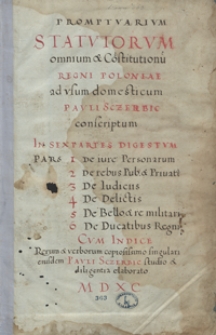 PROMPTVARIVM
STATVTORVM
omnium & Cõstitutionũ
REGNI POLONIAE
ad vsum domesticum
PAVLI SCZERBIC
conscriptum
IN SEX PARTES DIGESTVM
PARS 1 De iure Personarum
2 De rebus Pub: & Priuatis
3 De Iudiciis
4 De Delictis
5 De Bello & re militari
6 De Ducatibus Regni
CVM INDICE
Rerum & verborum copiosissimo singulari
eiusdem PAVLI SCZERBIC studio &
diligentia elaborato
MDXC